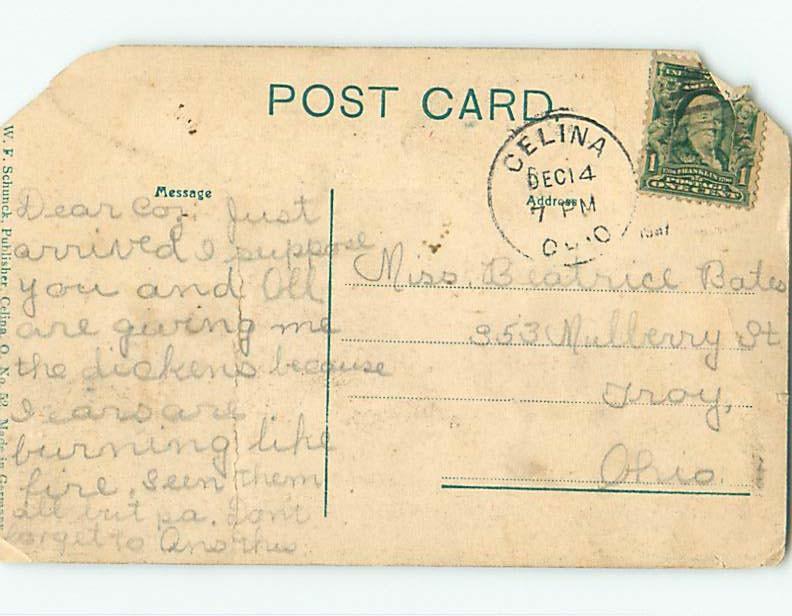 POST CARD
CELINA
DEC 14
7 PM
O
1
FRANKLIN
POSTAGE
ONE CENT
Message
Address
W. F. Schunck, Publisher, Celina, O. No. 52. Made in Germany
Dear Coz. Just
arrived I suppose
you and Oll
are giving me
the dickens because
ears are
burning like
fire. Seen them
all but pa. Dont
forget to
Miss. Beatrice Bates
353 Mulberry St
Troy,
Ohio.